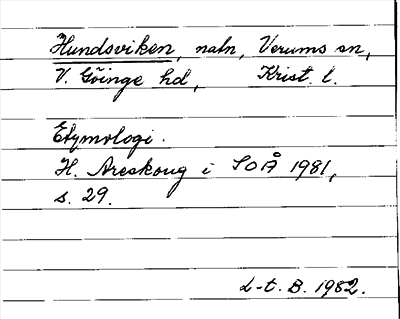 Hundsviken, natn, Verums sn,
V. Göinge hd, Krist. l.
Etymologi.
H. Areskoug i SOÅ 1981,
s. 29.
L-t. B. 1982.